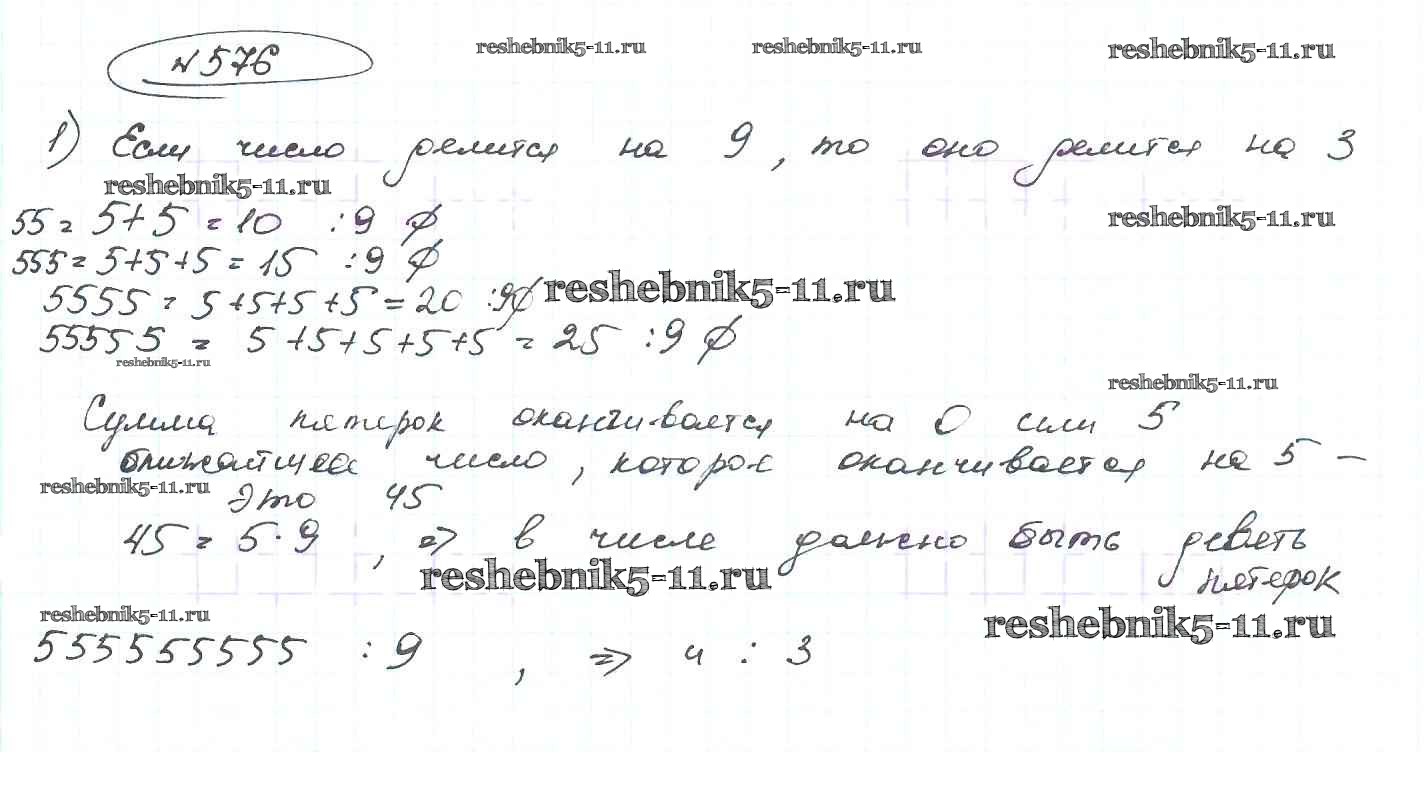 №576
reshebnik5-11.ru reshebnik5-11.ru reshebnik5-11.ru
1) Если число делится на 9, то оно делится на 3
reshebnik5-11.ru
55 = 5+5 = 10 :9 ∅
reshebnik5-11.ru
555 = 5+5+5 = 15 :9 ∅
5555 = 5+5+5+5 = 20 :9∅
reshebnik5-11.ru
55555 = 5+5+5+5+5 = 25 :9 ∅
reshebnik5-11.ru
reshebnik5-11.ru
Сумма пятерок оканчивается на 0 или 5
ближайшее число, которое оканчивается на 5 –
reshebnik5-11.ru
это 45
45 = 5·9, => в числе должно быть девять
пятерок
reshebnik5-11.ru
reshebnik5-11.ru
reshebnik5-11.ru
555555555 :9, => и : 3